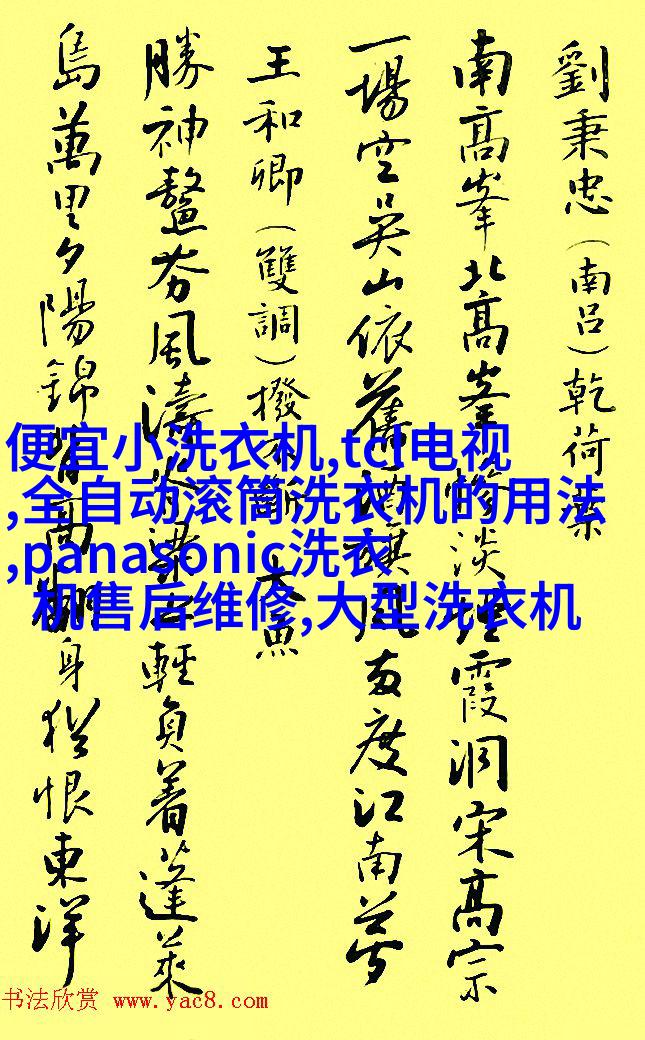 劉秉忠(南呂)乾荷葉
南高峯北高峯慘淡煙霞洞宋高宗
一場空吴山依舊酒旗風兩度江南夢
王和卿(雙調)撥不斷 大魚
勝神鰲夯風濤脊梁上輕負着蓬萊
島萬里夕陽錦背高翻身猶恨東洋
便宜小洗衣机,tcl电视
,全自动滚筒洗衣机的用法
,panasonic洗衣
机售后维修,大型洗衣机
书法欣赏 www.yac8.com